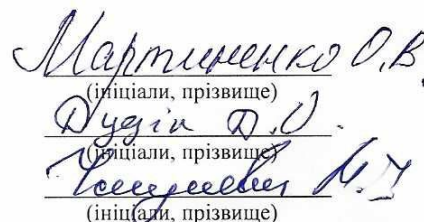 Мартиненко О.В.
(ініціали, прізвище)
Дудін Д.О.
(ініціали, прізвище)
М.І
(ініціали, прізвище)